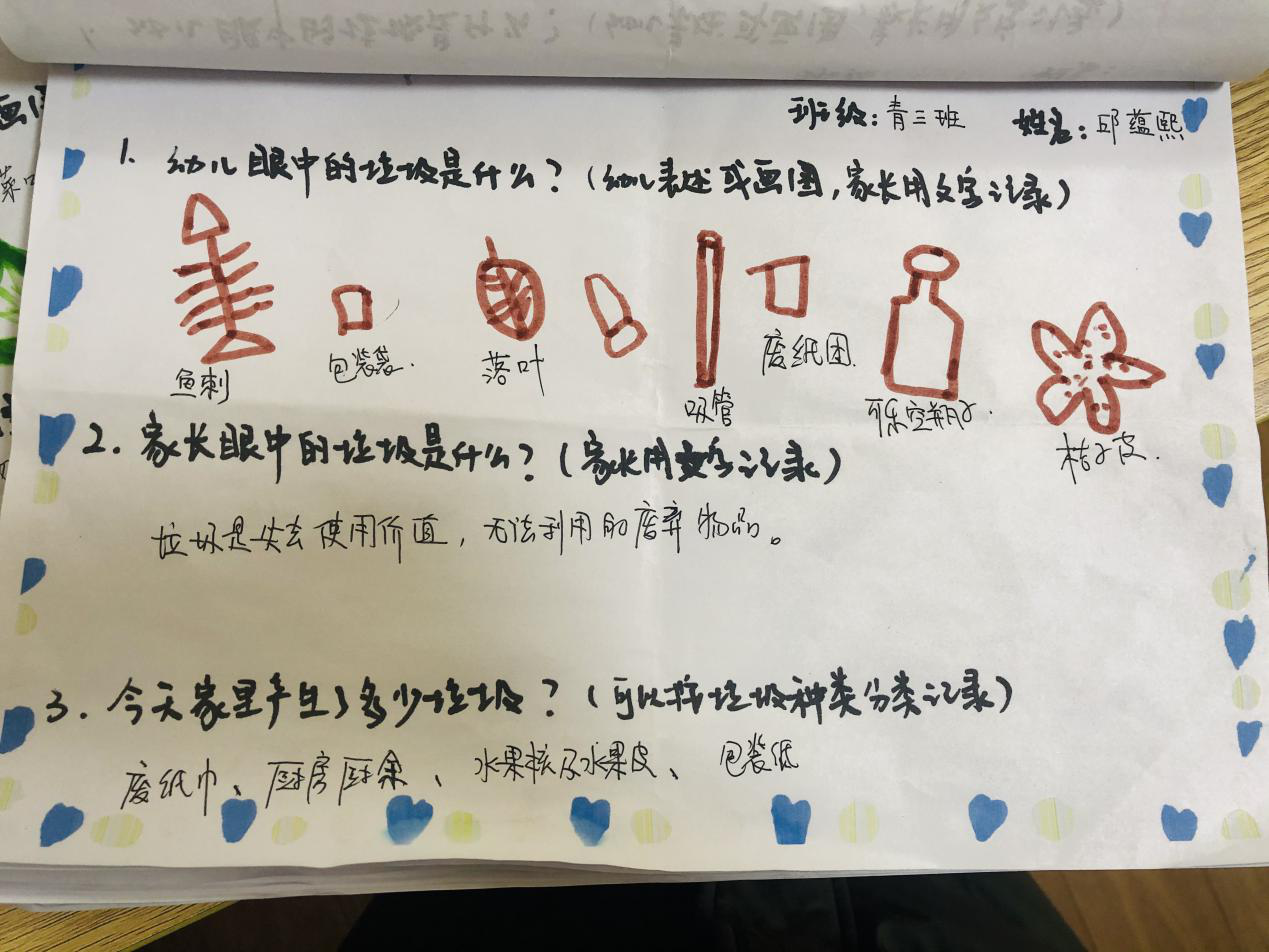 班级：青三班 姓名：邱蕴熙
1. 幼儿眼中的垃圾是什么？（幼儿表述或画图，家长用文字记录）
鱼刺 包装袋. 落叶 吸管 废纸团. 可乐空瓶子. 桔子皮.
2. 家长眼中的垃圾是什么？（家长用文字记录）
垃圾是失去使用价值，无法利用的废弃物品。
3. 今天家里产生了多少垃圾？（可以按垃圾种类分类记录）
废纸巾、厨房厨余、水果核及水果皮、包装纸